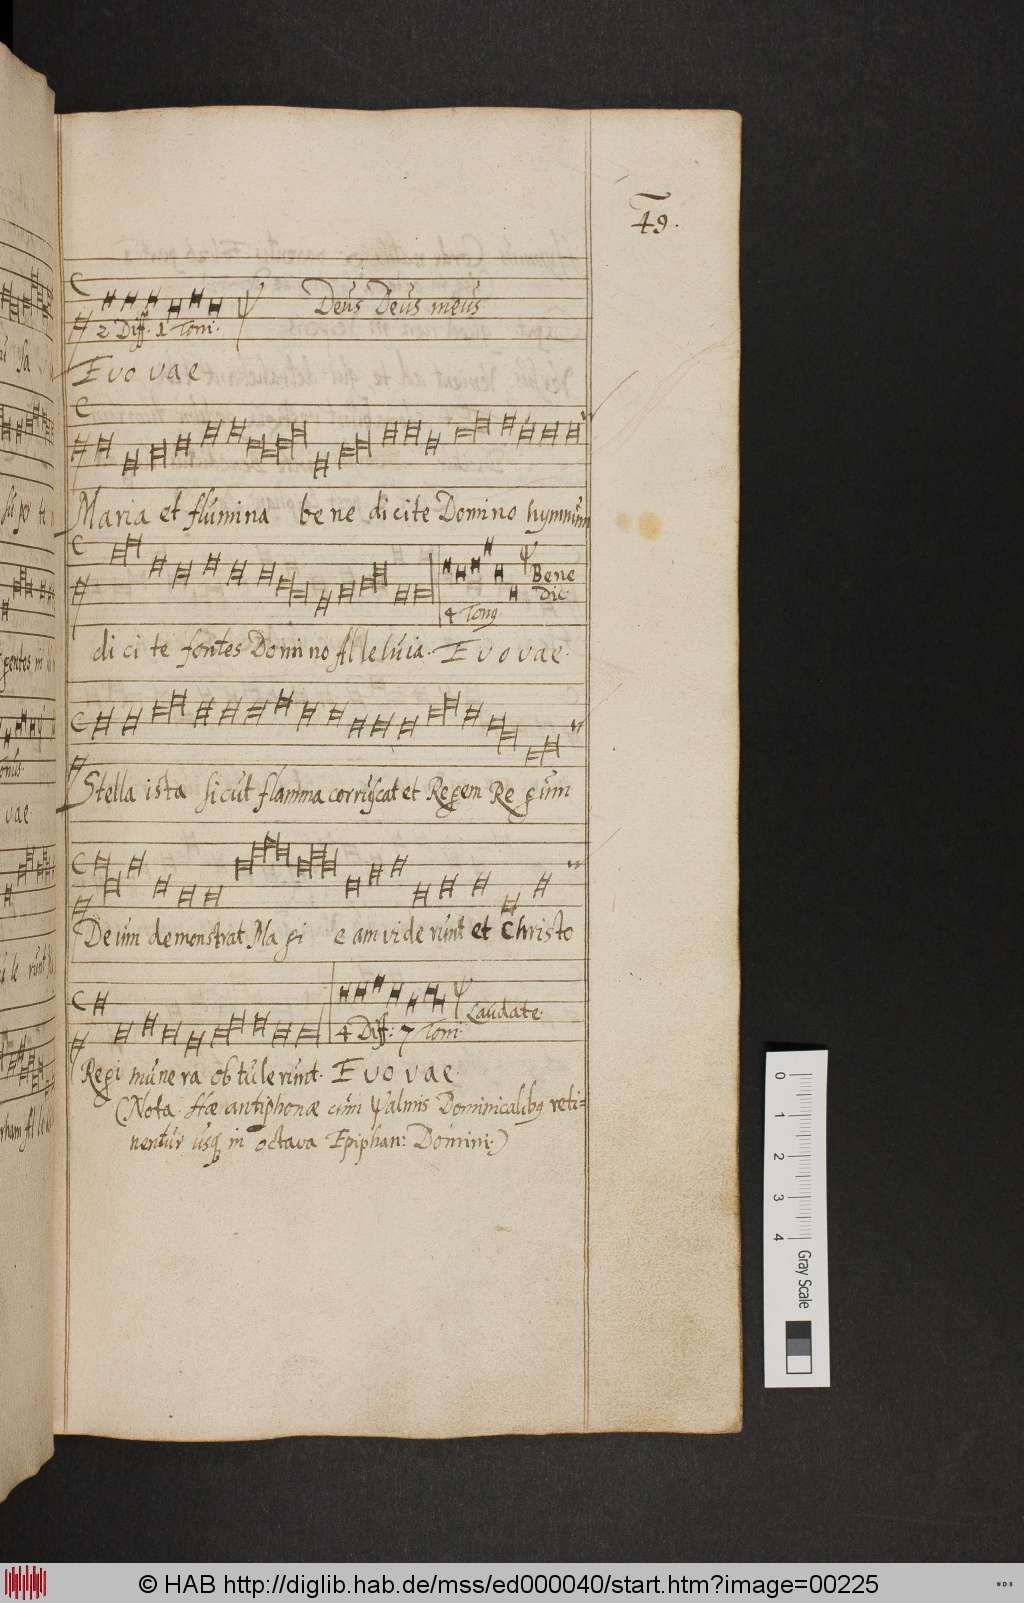 49.
2 Diff. 1 Toni. Deus Deus meus.
Evovae
Maria et flumina benedicite Domino hymnum
4 Tonq. Bene
Dic.
dicite fontes Domino Alleluia. Evovae.
Stella ista sicut flamma corruscat et Regem Regum
Deum demonstrat Magi eam viderunt et Christo
4 Diff: 7 Toni. Laudate.
Regi munera obtulerunt. Evovae.
(Nota. Hae antiphonae cum Psalmis Dominicalibq reti=
nentur usq in octava Epiphan: Domini.)
0 1 2 3 4 Gray Scale
© HAB http://diglib.hab.de/mss/ed000040/start.htm?image=00225